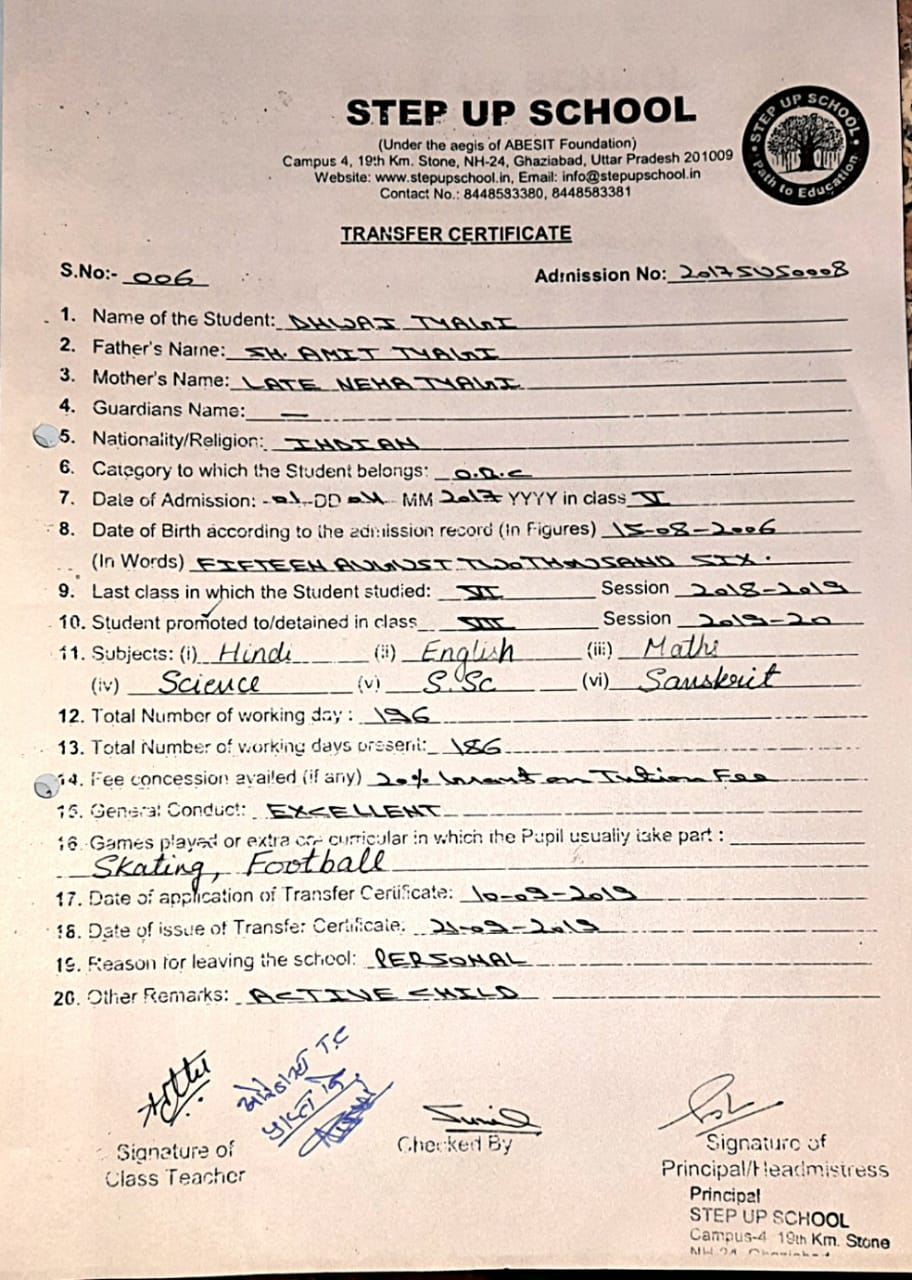 STEP UP SCHOOL
(Under the aegis of ABESIT Foundation)
Campus 4, 19th Km. Stone, NH-24, Ghaziabad, Uttar Pradesh 201009
Website: www.stepupschool.in, Email: info@stepupschool.in
Contact No.: 8448583380, 8448583381
STEP UP SCHOOL
Path to Education
TRANSFER CERTIFICATE
S.No:- 006 Admission No: 2017SUS0008
1. Name of the Student: DHWAJ TYAGI
2. Father's Name: SH. AMIT TYAGI
3. Mother's Name: LATE NEHA TYAGI
4. Guardians Name: —
5. Nationality/Religion: INDIAN
6. Category to which the Student belongs: O.B.C
7. Date of Admission: 01 DD 04 MM 2017 YYYY in class V
8. Date of Birth according to the admission record (In Figures) 15-08-2006
(In Words) FIFTEEN AUGUST TWO THOUSAND SIX.
9. Last class in which the Student studied: VII Session 2018-2019
10. Student promoted to/detained in class VIII Session 2019-20
11. Subjects: (i) Hindi (ii) English (iii) Maths
(iv) Science (v) S.Sc (vi) Sanskrit
12. Total Number of working day: 196
13. Total Number of working days present: 186
14. Fee concession availed (if any) 20% on Tution Fee
15. General Conduct: EXCELLENT
16. Games played or extra co-curricular in which the Pupil usually take part :
Skating, Football
17. Date of application of Transfer Certificate: 10-09-2019
18. Date of issue of Transfer Certificate: 21-09-2019
19. Reason for leaving the school: PERSONAL
20. Other Remarks: ACTIVE CHILD
T.C
Sunil
Signature of
Class Teacher
Checked By
Signature of
Principal/Headmistress
Principal
STEP UP SCHOOL
Campus-4 19th Km. Stone
NH-24 Ghaziabad